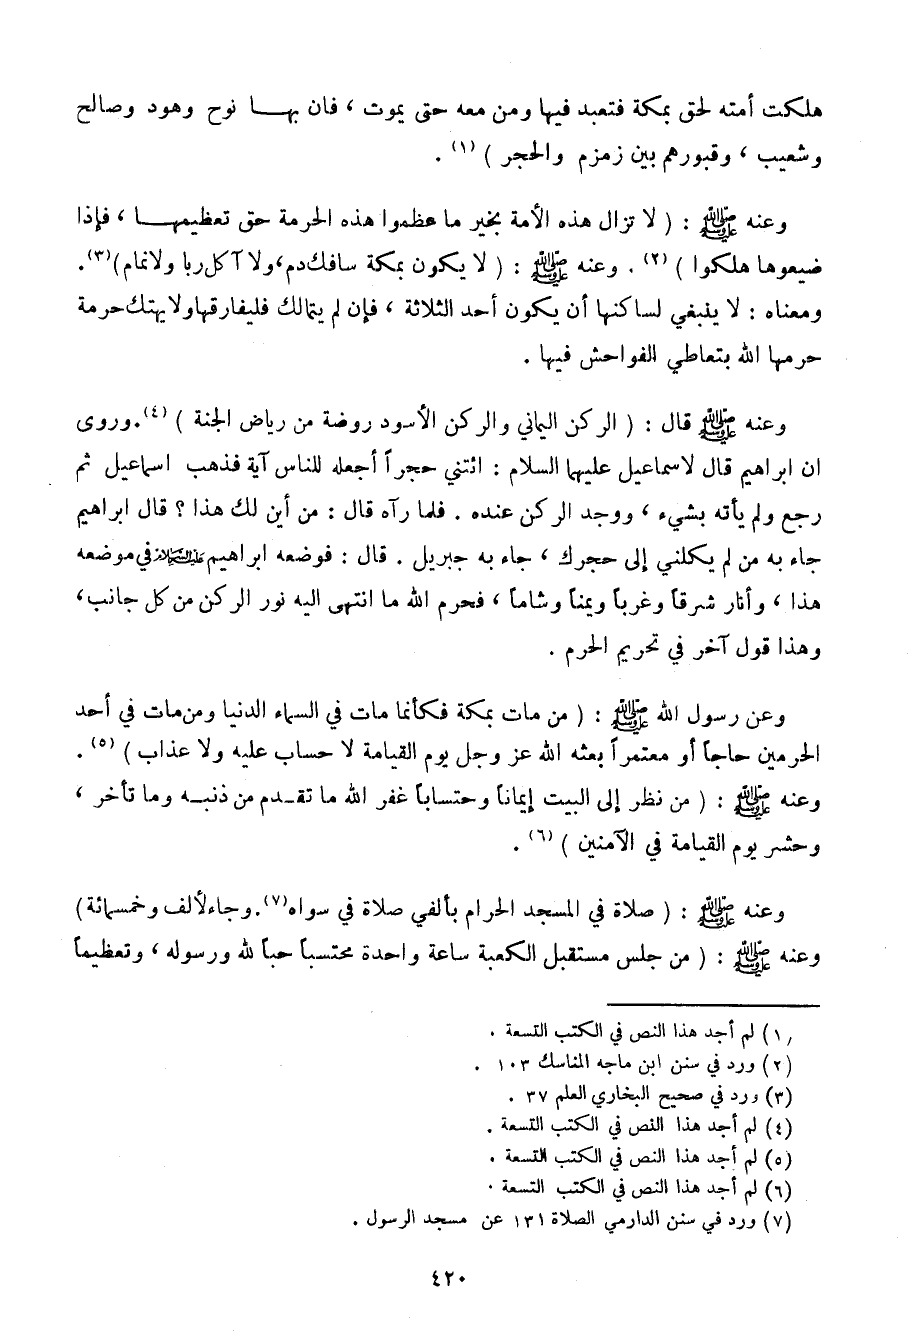 هلكت أمته لحق بمكة فتعبد فيها ومن معه حتى يموت ، فان بهـــا نوح وهود وصالح
وشعيب ، وقبورهم بين زمزم والحجر ) (١) .
وعنه ﷺ : ( لا تزال هذه الأمة بخير ما عظموا هذه الحرمة حق تعظيمهـــا ، فإذا
ضيعوها هلكوا ) (٢) . وعنه ﷺ : ( لا يكون بمكة سافك دم، ولا آكل ربا ولا نمام)(٣).
ومعناه : لا ينبغي لساكنها أن يكون أحد الثلاثة ، فإن لم يتمالك فليفارقها ولا يهتك حرمة
حرمها الله بتعاطي الفواحش فيها .
وعنه ﷺ قال : ( الركن اليماني والركن الأسود روضة من رياض الجنة ) (٤). وروى
ان ابراهيم قال لاسماعيل عليهما السلام : ائتني حجراً أجعله للناس آية فذهب اسماعيل ثم
رجع ولم يأته بشيء ، ووجد الركن عنده . فلما رآه قال : من أين لك هذا ؟ قال ابراهيم
جاء به من لم يكلني إلى حجرك ، جاء به جبريل . قال : فوضعه ابراهيم عليه السلام في موضعه
هذا ، وأنار شرقاً وغرباً ويمناً وشاماً ، فحرم الله ما انتهى اليه نور الركن من كل جانب،
وهذا قول آخر في تحريم الحرم .
وعن رسول الله ﷺ : ( من مات بمكة فكأنما مات في السماء الدنيا ومن مات في أحد
الحرمين حاجاً أو معتمراً بعثه الله عز وجل يوم القيامة لا حساب عليه ولا عذاب ) (٥) .
وعنه ﷺ : ( من نظر إلى البيت إيماناً وحتساباً غفر الله ما تقـدم من ذنبـه وما تأخر ،
وحشر يوم القيامة في الآمنين ) (٦) .
وعنه ﷺ : ( صلاة في المسجد الحرام بألفي صلاة في سواه(٧). وجاء لألف وخمسمائة)
وعنه ﷺ : ( من جلس مستقبل الكعبة ساعة واحدة محتسباً حباً لله ورسوله ، وتعظيماً
(١) لم أجد هذا النص في الكتب التسعة .
(٢) ورد في سنن ابن ماجه المناسك ١٠٣ .
(٣) ورد في صحيح البخاري العلم ٣٧ .
(٤) لم أجد هذا النص في الكتب التسعة .
(٥) لم أجد هذا النص في الكتب التسعة .
(٦) لم أجد هذا النص في الكتب التسعة .
(٧) ورد في سنن الدارمي الصلاة ١٣١ عن مسجد الرسول .
٤٢٠